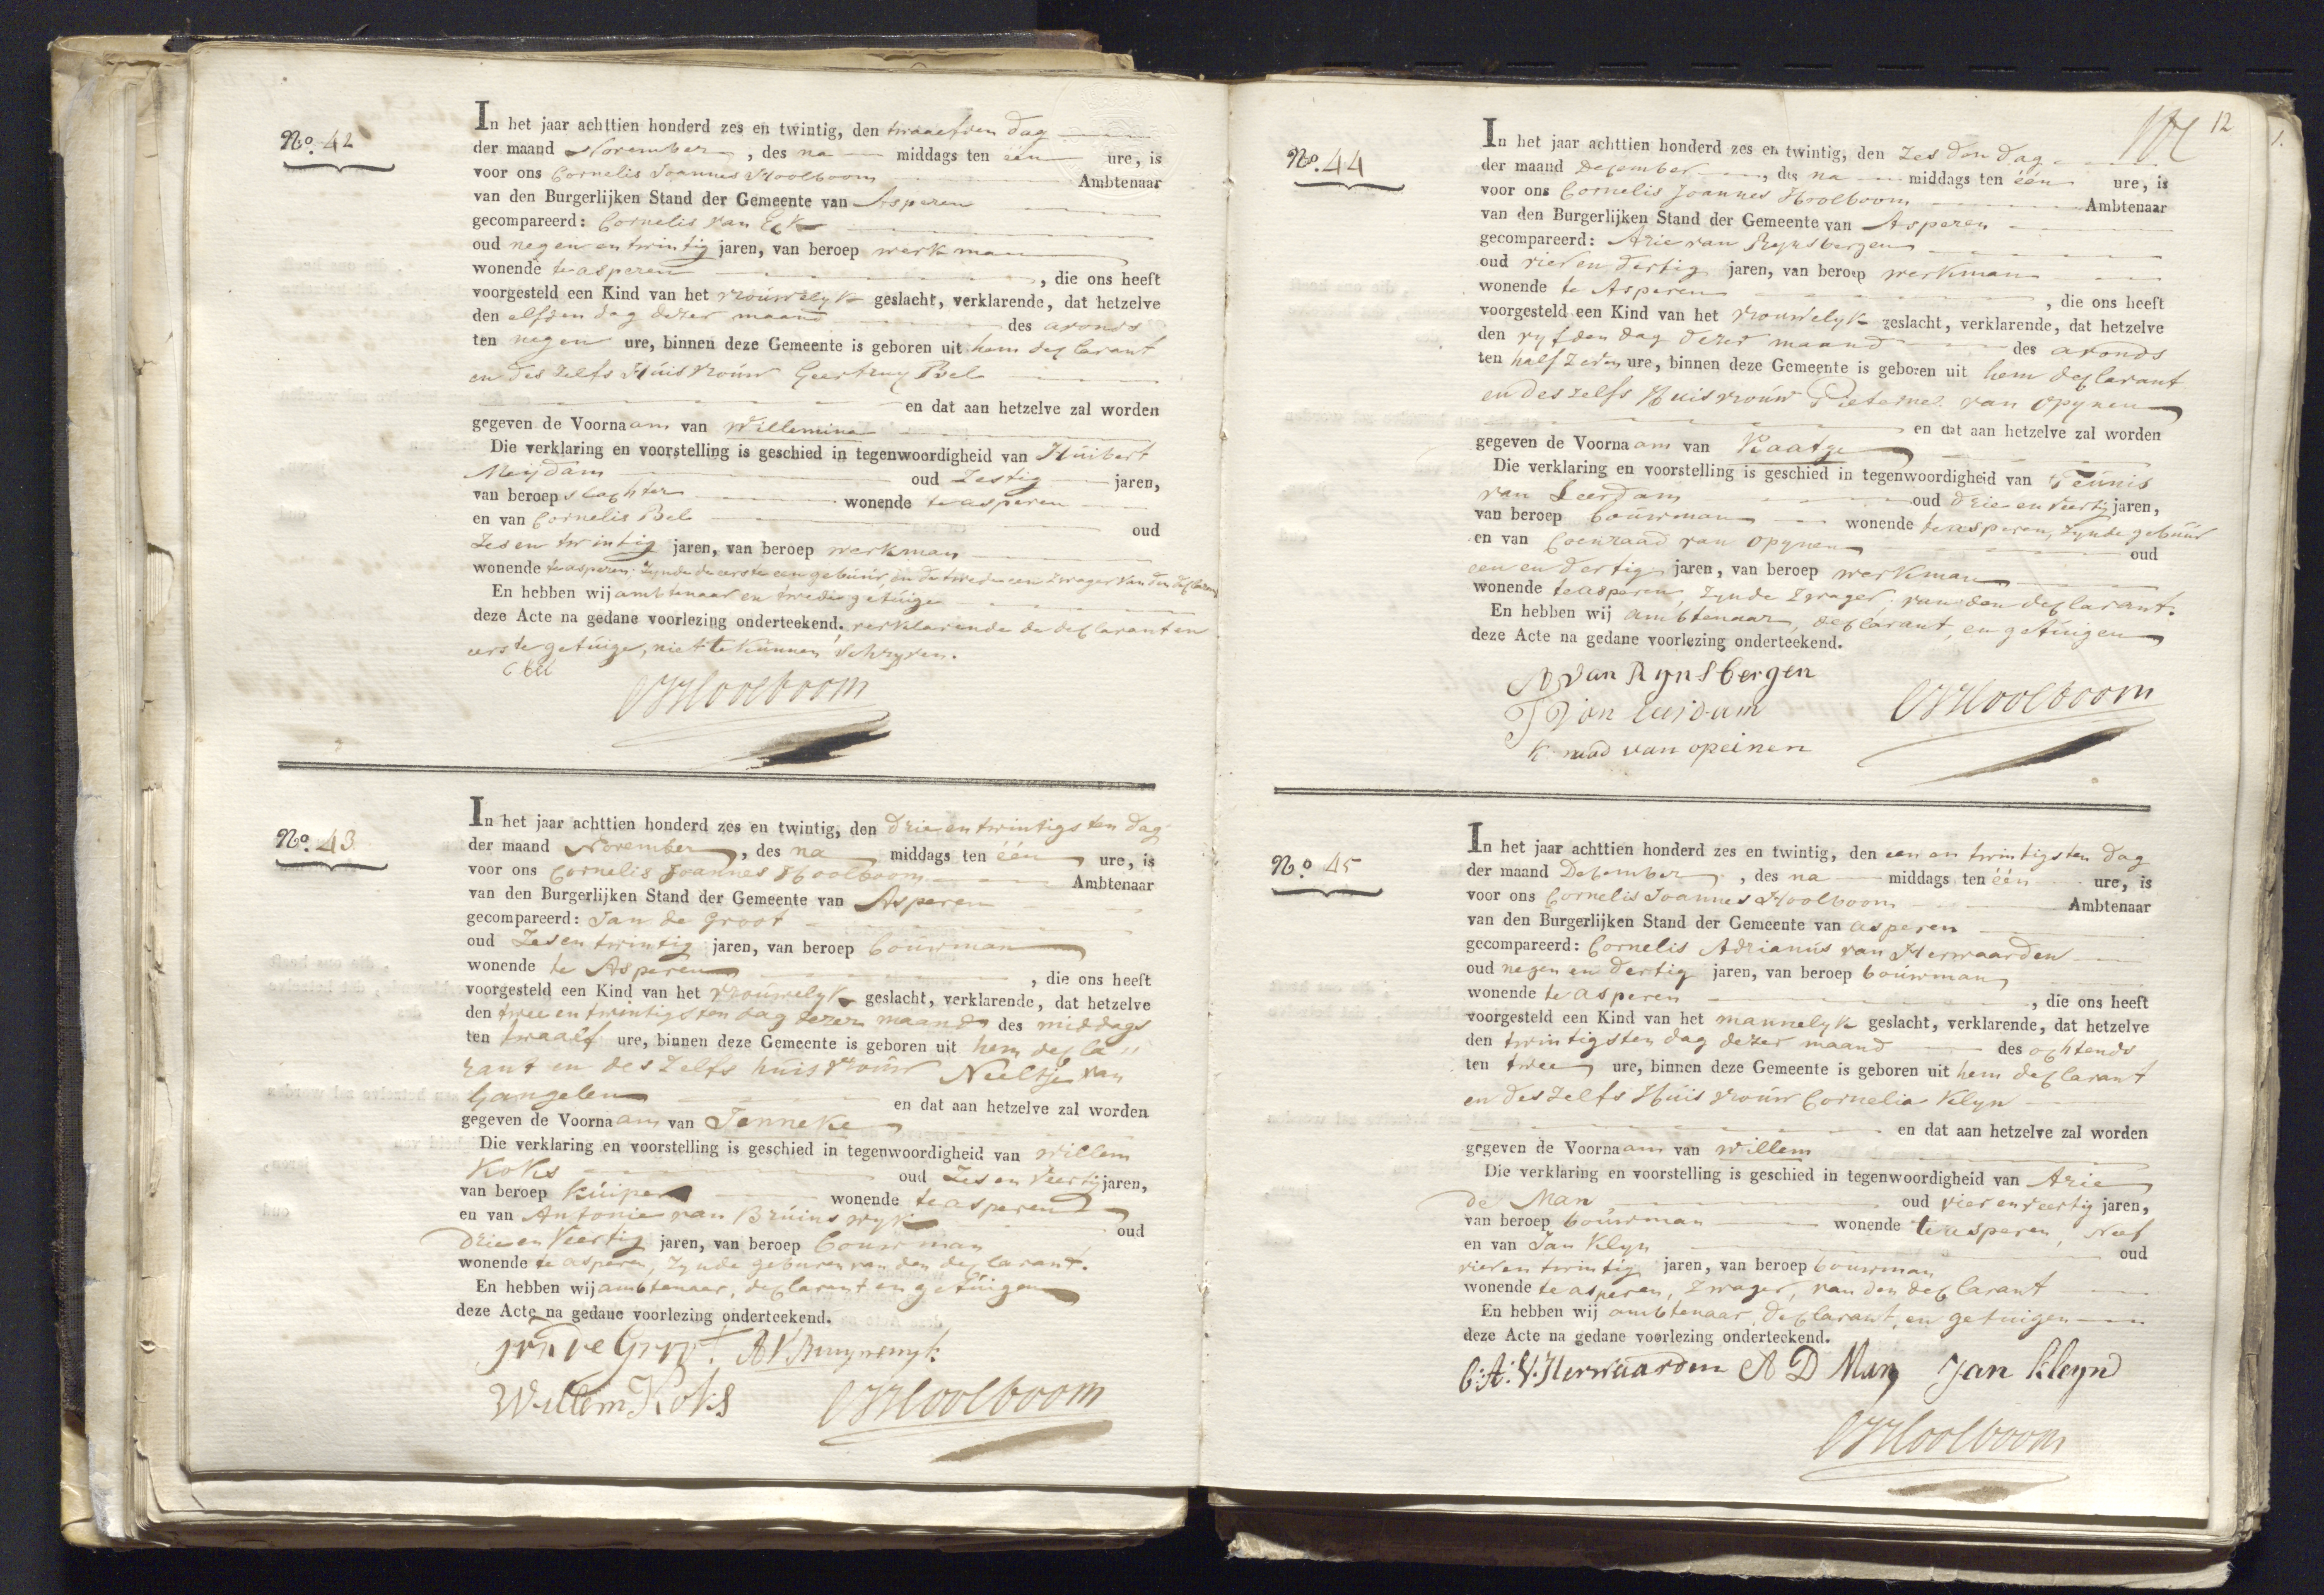 No. 42
In het jaar achttien honderd zes en twintig, den twaalfden dag
der maand November, des na middags ten één ure, is
voor ons Cornelis Joannes Hoolboom Ambtenaar
van den Burgerlijken Stand der Gemeente van Asperen
gecompareerd: Cornelis van Eck
oud negen en twintig jaren, van beroep werkman
wonende te asperen, die ons heeft
voorgesteld een Kind van het vrouwelyk geslacht, verklarende, dat hetzelve
den elfden dag dezer maand des avonds
ten negen ure, binnen deze Gemeente is geboren uit hem declarant
en des zelfs Huisvrouw Geertruy Bel
en dat aan hetzelve zal worden
gegeven de Voornaam van Willemina
Die verklaring en voorstelling is geschied in tegenwoordigheid van Huibert
Meydam oud Zestig jaren,
van beroep slachter wonende te asperen
en van Cornelis Bel oud
Zes en twintig jaren, van beroep werkman
wonende te asperen. Zynde de eerste een gebuur, en de twede een zwager van den declarant
En hebben wij ambtenaar en twede getuige
deze Acte na gedane voorlezing onderteekend, verklarende de declarant en
eerste getuige, niet te kunnen schryven.
C Bel
CJHoolboom
No. 43
In het jaar achttien honderd zes en twintig, den drie en twintigsten dag
der maand November, des na middags ten één ure, is
voor ons Cornelis Joannes Hoolboom Ambtenaar
van den Burgerlijken Stand der Gemeente van Asperen
gecompareerd: Jan de Groot
oud Zes en twintig jaren, van beroep bouwman
wonende te Asperen, die ons heeft
voorgesteld een Kind van het vrouwelyk geslacht, verklarende, dat hetzelve
den twee en twintigsten dag dezer maand des middags
ten twaalf ure, binnen deze Gemeente is geboren uit hem decla"
rant en des zelfs huisvrouw Neeltje van
Gangelen en dat aan hetzelve zal worden
gegeven de Voornaam van Jenneke
Die verklaring en voorstelling is geschied in tegenwoordigheid van Willem
Koks oud Zes en Veertig jaren,
van beroep Kuiper wonende te asperen
en van Antonie van Bruinswyk oud
drie en Veertig jaren, van beroep bouwman
wonende te asperen, Zynde geburen van den declarant.
En hebben wij ambtenaar, declarant en getuigen
deze Acte na gedane voorlezing onderteekend.
Jan de Groot AVBruynswyk
Willem Koks CJHoolboom
12
No. 44
In het jaar achttien honderd zes en twintig, den Zesden dag
der maand December, des na middags ten één ure, is
voor ons Cornelis Joannes Hoolboom Ambtenaar
van den Burgerlijken Stand der Gemeente van Asperen
gecompareerd: Arie van Rynsbergen
oud vier en dertig jaren, van beroep werkman
wonende te Asperen, die ons heeft
voorgesteld een Kind van het vrouwelyk geslacht, verklarende, dat hetzelve
den vyfden dag dezer maand des avonds
ten half Zeven ure, binnen deze Gemeente is geboren uit hem declarant
en des zelfs Huisvrouw Pieternel van Opynen
en dat aan hetzelve zal worden
gegeven de Voornaam van Kaatje
Die verklaring en voorstelling is geschied in tegenwoordigheid van Teunis
van Leerdam oud drie en veertig jaren,
van beroep bouwman wonende te asperen, Zynde gebuur
en van Coenraad van Opynen oud
een en dertig jaren, van beroep werkman
wonende te asperen, Zynde Zwager, van den declarant.
En hebben wij ambtenaar, declarant, en getuigen
deze Acte na gedane voorlezing onderteekend.
A van Rynsbergen
T van leerdam CJHoolboom
van opeinen
No. 45
In het jaar achttien honderd zes en twintig, den een en twintigsten dag
der maand December, des na middags ten één ure, is
voor ons Cornelis Joannes Hoolboom Ambtenaar
van den Burgerlijken Stand der Gemeente van asperen
gecompareerd: Cornelis Adrianus van Herwaarden
oud negen en dertig jaren, van beroep bouwman
wonende te asperen, die ons heeft
voorgesteld een Kind van het mannelyk geslacht, verklarende, dat hetzelve
den twintigsten dag dezer maand des ochtends
ten twee ure, binnen deze Gemeente is geboren uit hem declarant
en des zelfs Huisvrouw Cornelia Klyn
en dat aan hetzelve zal worden
gegeven de Voornaam van Willem
Die verklaring en voorstelling is geschied in tegenwoordigheid van Arie
de Man oud vier en veertig jaren,
van beroep bouwman wonende te asperen, Neef
en van Jan Klyn oud
vier en twintig jaren, van beroep bouwman
wonende te asperen, Zwager, van den declarant
En hebben wij ambtenaar, declarant, en getuigen
deze Acte na gedane voorlezing onderteekend.
C:A:V:Herwaarden A D Man Jan kleyn
CJHoolboom